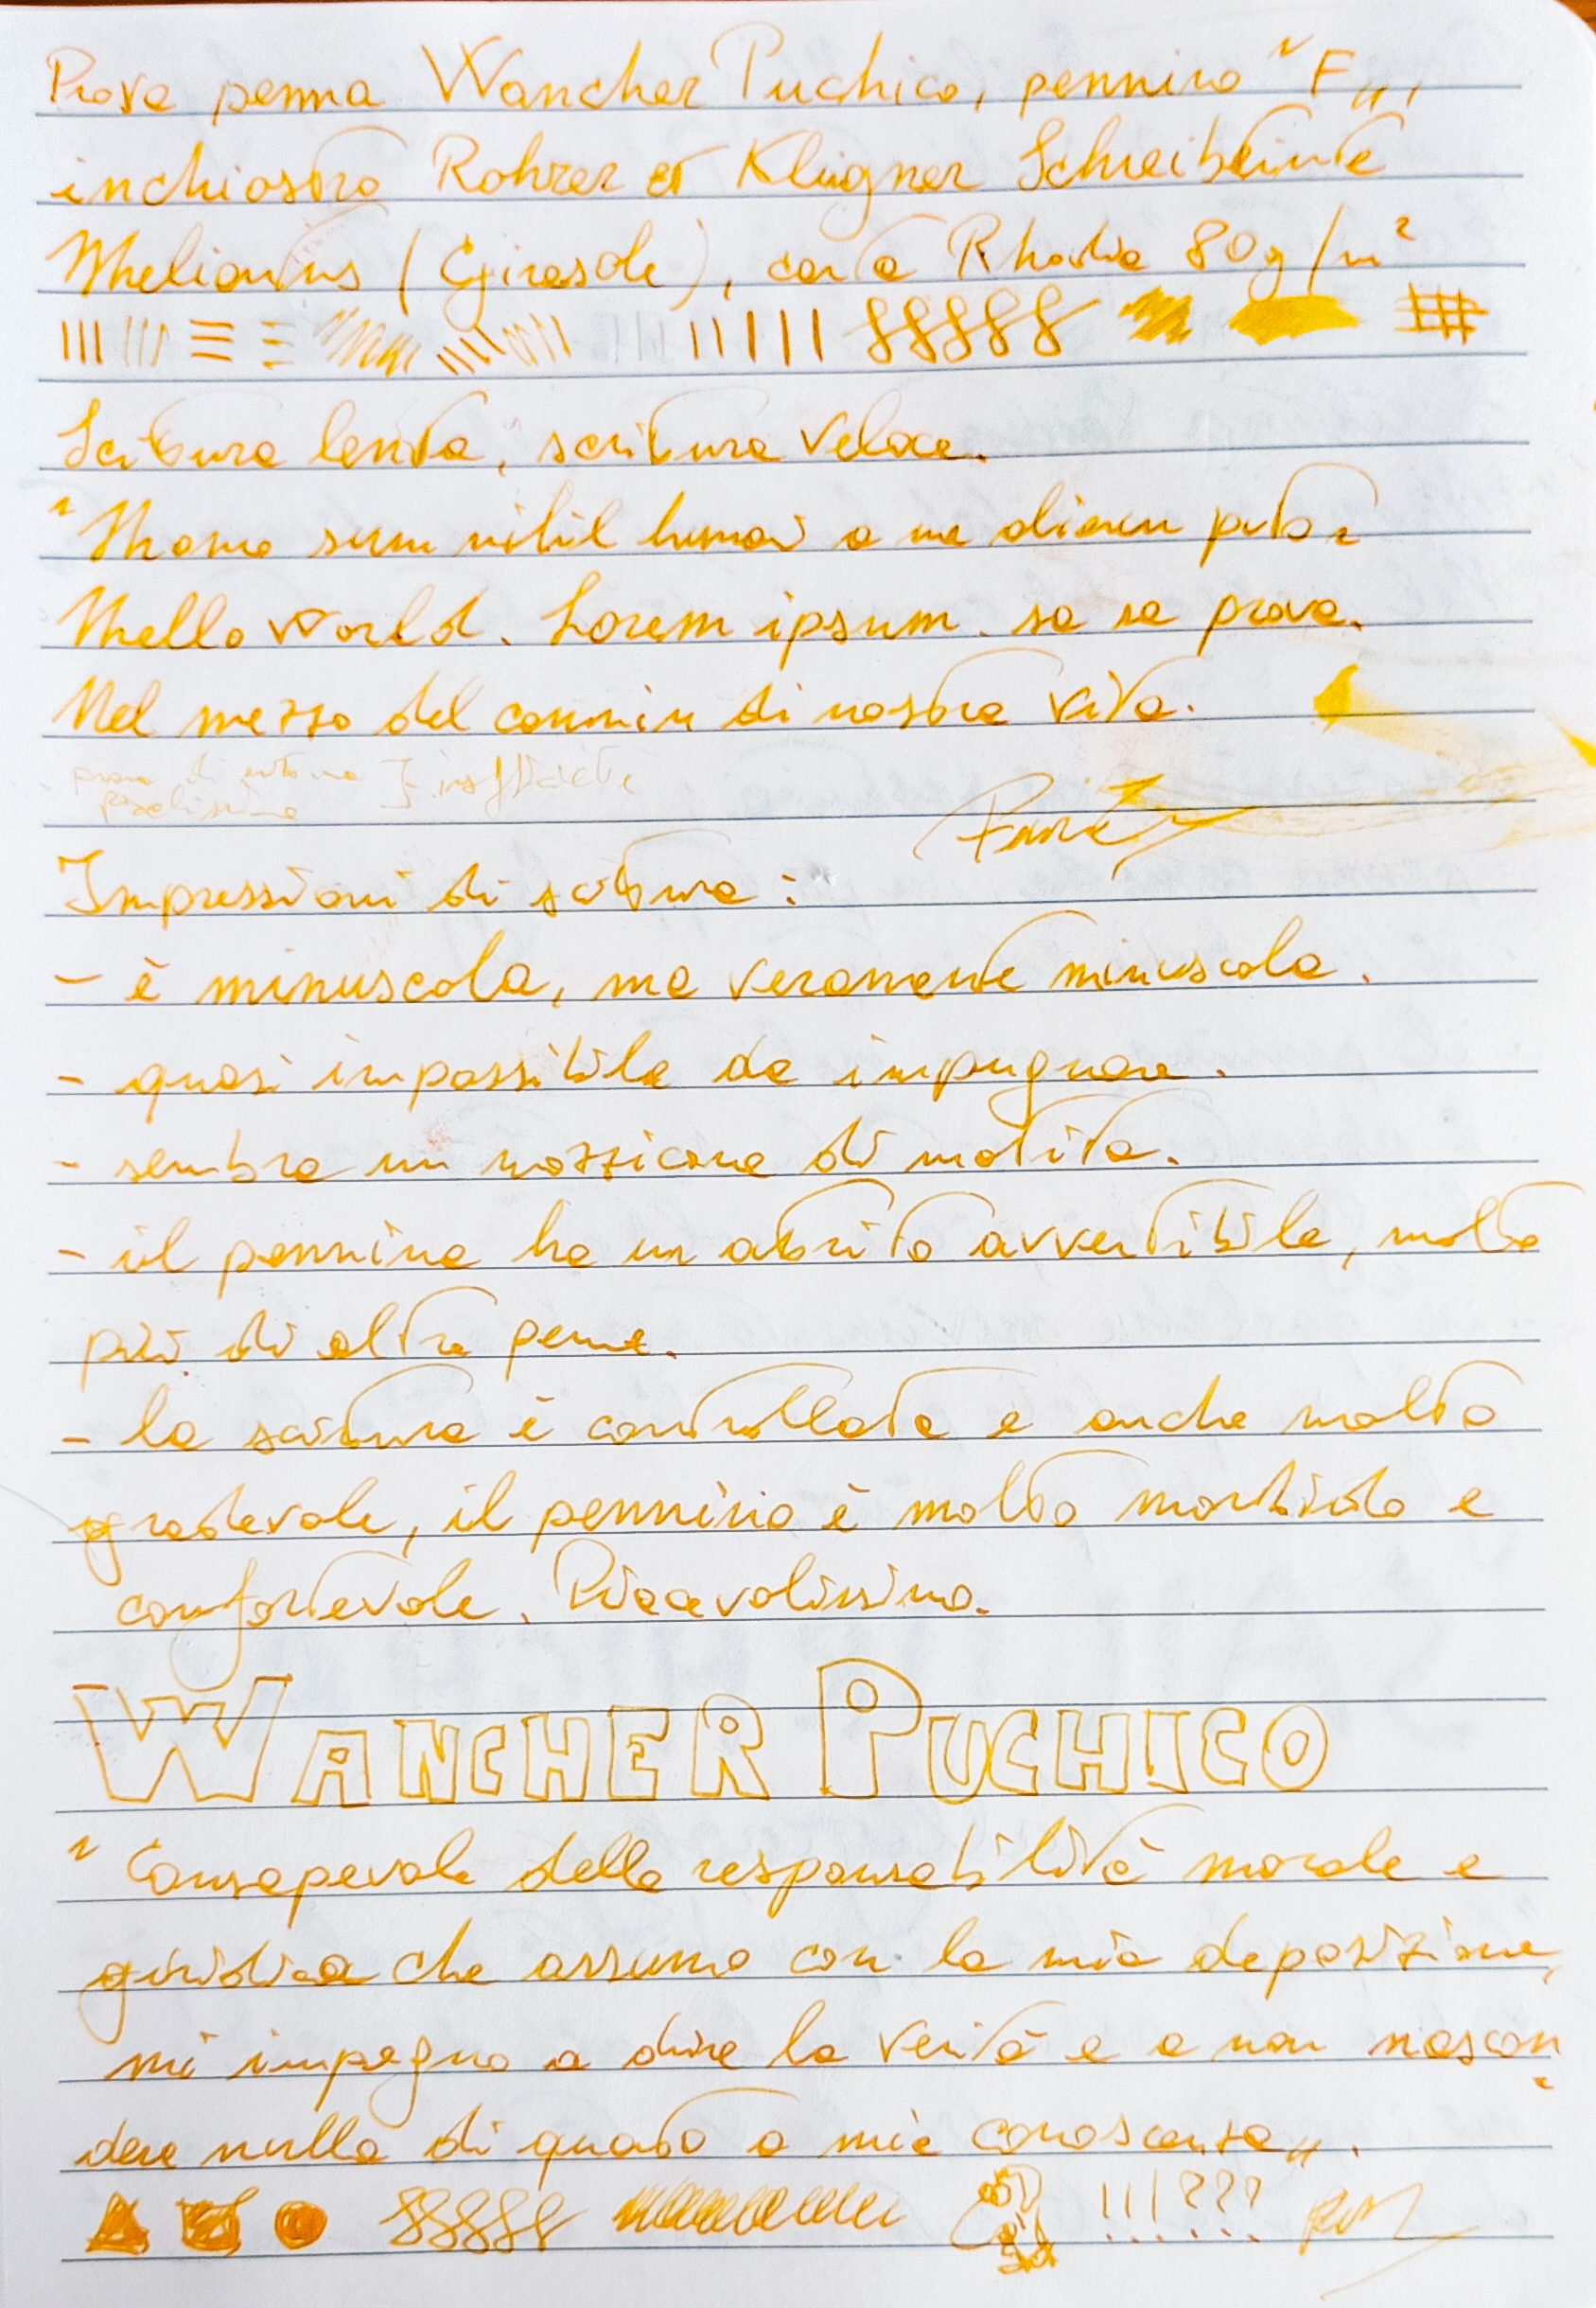 Prova penna Wancher Puchico, pennino "F",
inchiostro Rohrer et Klingner Schreibtinte
Helianthus (Girasole), carta Rhodia 80g/m²
Scrittura lenta, scrittura veloce.
"Homo sum nihil humani a me alienum puto"
Hello World. Lorem ipsum. sa sa prova.
Nel mezzo del cammin di nostra vita.
prova di scrittura } insufficiente
Impressioni di scrittura:
- è minuscola, ma veramente minuscola.
- quasi impossibile da impugnare.
- sembra un mozzicone di matita.
- il pennino ha un attrito avvertibile, molto
più di altre penne.
- la scrittura è controllata e anche molto
gradevole, il pennino è molto morbido e
confortevole. Piacevolissimo.
WANCHER PUCHICO
"Consapevole della responsabilità morale e
giuridica che assumo con la mia deposizione,
mi impegno a dire la verità e a non nascon-
dere nulla di quanto a mia conoscenza".
!!! ???